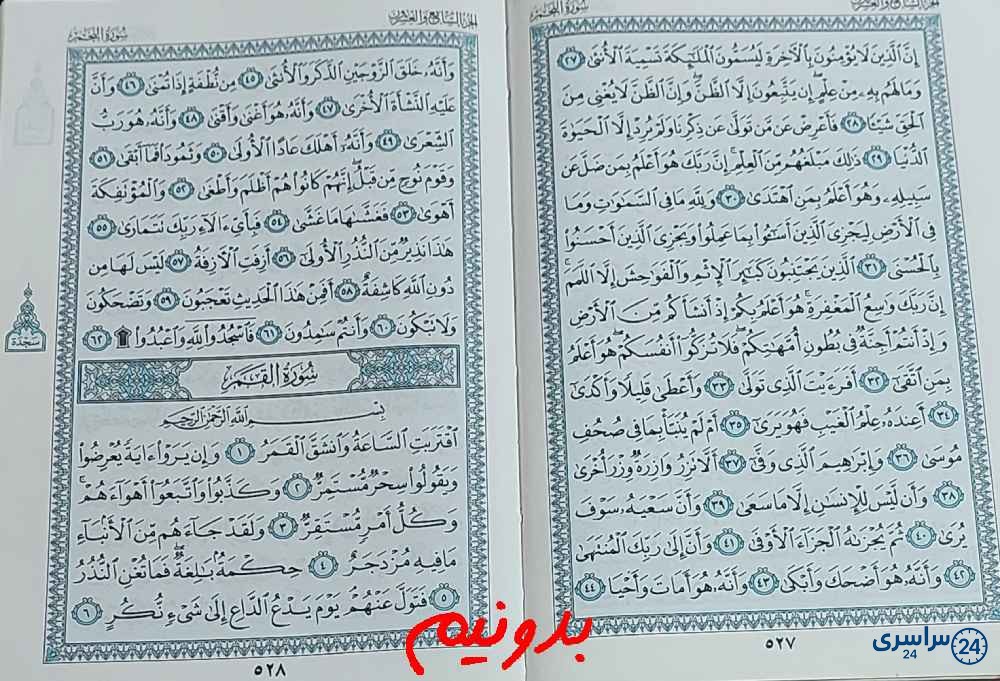 الجزء السابع والعشرون
إِنَّ ٱلَّذِينَ لَا يُؤۡمِنُونَ بِٱلۡأٓخِرَةِ لَيُسَمُّونَ ٱلۡمَلَٰٓئِكَةَ تَسۡمِيَةَ ٱلۡأُنثَىٰ ٢٧
وَمَا لَهُم بِهِۦ مِنۡ عِلۡمٍۖ إِن يَتَّبِعُونَ إِلَّا ٱلظَّنَّۖ وَإِنَّ ٱلظَّنَّ لَا يُغۡنِي مِنَ
ٱلۡحَقِّ شَيۡـٔٗا ٢٨ فَأَعۡرِضۡ عَن مَّن تَوَلَّىٰ عَن ذِكۡرِنَا وَلَمۡ يُرِدۡ إِلَّا ٱلۡحَيَوٰةَ
ٱلدُّنۡيَا ٢٩ ذَٰلِكَ مَبۡلَغُهُم مِّنَ ٱلۡعِلۡمِۚ إِنَّ رَبَّكَ هُوَ أَعۡلَمُ بِمَن ضَلَّ عَن
سَبِيلِهِۦ وَهُوَ أَعۡلَمُ بِمَنِ ٱهۡتَدَىٰ ٣٠ وَلِلَّهِ مَا فِي ٱلسَّمَٰوَٰتِ وَمَا
فِي ٱلۡأَرۡضِ لِيَجۡزِيَ ٱلَّذِينَ أَسَٰٓـُٔواْ بِمَا عَمِلُواْ وَيَجۡزِيَ ٱلَّذِينَ أَحۡسَنُواْ
بِٱلۡحُسۡنَى ٣١ ٱلَّذِينَ يَجۡتَنِبُونَ كَبَٰٓئِرَ ٱلۡإِثۡمِ وَٱلۡفَوَٰحِشَ إِلَّا ٱللَّمَمَۚ
إِنَّ رَبَّكَ وَٰسِعُ ٱلۡمَغۡفِرَةِۚ هُوَ أَعۡلَمُ بِكُمۡ إِذۡ أَنشَأَكُم مِّنَ ٱلۡأَرۡضِ
وَإِذۡ أَنتُمۡ أَجِنَّةٞ فِي بُطُونِ أُمَّهَٰتِكُمۡۖ فَلَا تُزَكُّوٓاْ أَنفُسَكُمۡۖ هُوَ أَعۡلَمُ
بِمَنِ ٱتَّقَىٰٓ ٣٢ أَفَرَءَيۡتَ ٱلَّذِي تَوَلَّىٰ ٣٣ وَأَعۡطَىٰ قَلِيلٗا وَأَكۡدَىٰٓ
٣٤ أَعِندَهُۥ عِلۡمُ ٱلۡغَيۡبِ فَهُوَ يَرَىٰٓ ٣٥ أَمۡ لَمۡ يُنَبَّأۡ بِمَا فِي صُحُفِ
مُوسَىٰ ٣٦ وَإِبۡرَٰهِيمَ ٱلَّذِي وَفَّىٰٓ ٣٧ أَلَّا تَزِرُ وَازِرَةٞ وِزۡرَ أُخۡرَىٰ
٣٨ وَأَن لَّيۡسَ لِلۡإِنسَٰنِ إِلَّا مَا سَعَىٰ ٣٩ وَأَنَّ سَعۡيَهُۥ سَوۡفَ
يُرَىٰ ٤٠ ثُمَّ يُجۡزَىٰهُ ٱلۡجَزَآءَ ٱلۡأَوۡفَىٰ ٤١ وَأَنَّ إِلَىٰ رَبِّكَ ٱلۡمُنتَهَىٰ
٤٢ وَأَنَّهُۥ هُوَ أَضۡحَكَ وَأَبۡكَىٰ ٤٣ وَأَنَّهُۥ هُوَ أَمَاتَ وَأَحۡيَا ٤٤
٥٢٧
سورة النجم
الجزء السابع والعشرون
سورة النجم
وَأَنَّهُۥ خَلَقَ ٱلزَّوۡجَيۡنِ ٱلذَّكَرَ وَٱلۡأُنثَىٰ ٤٥ مِن نُّطۡفَةٍ إِذَا تُمۡنَىٰ ٤٦ وَأَنَّ
عَلَيۡهِ ٱلنَّشۡأَةَ ٱلۡأُخۡرَىٰ ٤٧ وَأَنَّهُۥ هُوَ أَغۡنَىٰ وَأَقۡنَىٰ ٤٨ وَأَنَّهُۥ هُوَ رَبُّ
ٱلشِّعۡرَىٰ ٤٩ وَأَنَّهُۥٓ أَهۡلَكَ عَادًا ٱلۡأُولَىٰ ٥٠ وَثَمُودَاْ فَمَآ أَبۡقَىٰ ٥١
وَقَوۡمَ نُوحٖ مِّن قَبۡلُۖ إِنَّهُمۡ كَانُواْ هُمۡ أَظۡلَمَ وَأَطۡغَىٰ ٥٢ وَٱلۡمُؤۡتَفِكَةَ
أَهۡوَىٰ ٥٣ فَغَشَّىٰهَا مَا غَشَّىٰ ٥٤ فَبِأَيِّ ءَالَآءِ رَبِّكَ تَتَمَارَىٰ ٥٥
هَٰذَا نَذِيرٞ مِّنَ ٱلنُّذُرِ ٱلۡأُولَىٰٓ ٥٦ أَزِفَتِ ٱلۡأٓزِفَةُ ٥٧ لَيۡسَ لَهَا مِن
دُونِ ٱللَّهِ كَاشِفَةٌ ٥٨ أَفَمِنۡ هَٰذَا ٱلۡحَدِيثِ تَعۡجَبُونَ ٥٩ وَتَضۡحَكُونَ
وَلَا تَبۡكُونَ ٦٠ وَأَنتُمۡ سَٰمِدُونَ ٦١ فَٱسۡجُدُواْۤ لِلَّهِۤ وَٱعۡبُدُواْ ۩ ٦٢
سجدة
سورة القمر
بِسۡمِ ٱللَّهِ ٱلرَّحۡمَٰنِ ٱلرَّحِيمِ
ٱقۡتَرَبَتِ ٱلسَّاعَةُ وَٱنشَقَّ ٱلۡقَمَرُ ١ وَإِن يَرَوۡاْ ءَايَةٗ يُعۡرِضُواْ
وَيَقُولُواْ سِحۡرٞ مُّسۡتَمِرّٞ ٢ وَكَذَّبُواْ وَٱتَّبَعُوٓاْ أَهۡوَآءَهُمۡۚ
وَكُلُّ أَمۡرٖ مُّسۡتَقِرّٞ ٣ وَلَقَدۡ جَآءَهُم مِّنَ ٱلۡأَنۢبَآءِ
مَا فِيهِ مُزۡدَجَرٌ ٤ حِكۡمَةُۢ بَٰلِغَةٞۖ فَمَا تُغۡنِ ٱلنُّذُرُ
٥ فَتَوَلَّ عَنۡهُمۡۘ يَوۡمَ يَدۡعُ ٱلدَّاعِ إِلَىٰ شَيۡءٖ نُّكُرٍ ٦
٥٢٨
بدونیم
سراسری
24
24